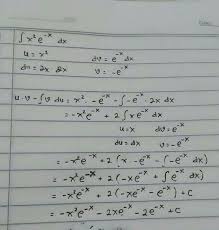 ∫ x² e⁻ˣ dx
u = x² dv = e⁻ˣ dx
du = 2x dx v = -e⁻ˣ
u·v - ∫ v du = x² · -e⁻ˣ - ∫ -e⁻ˣ · 2x dx
= -x² e⁻ˣ + 2 ∫ x e⁻ˣ dx
u = x dv = e⁻ˣ
du = dx v = -e⁻ˣ
= -x² e⁻ˣ + 2 (x · -e⁻ˣ - ∫ -e⁻ˣ dx)
= -x² e⁻ˣ + 2 (-x e⁻ˣ + ∫ e⁻ˣ dx)
= -x² e⁻ˣ + 2 (-x e⁻ˣ - e⁻ˣ) + C
= -x² e⁻ˣ - 2x e⁻ˣ - 2 e⁻ˣ + C